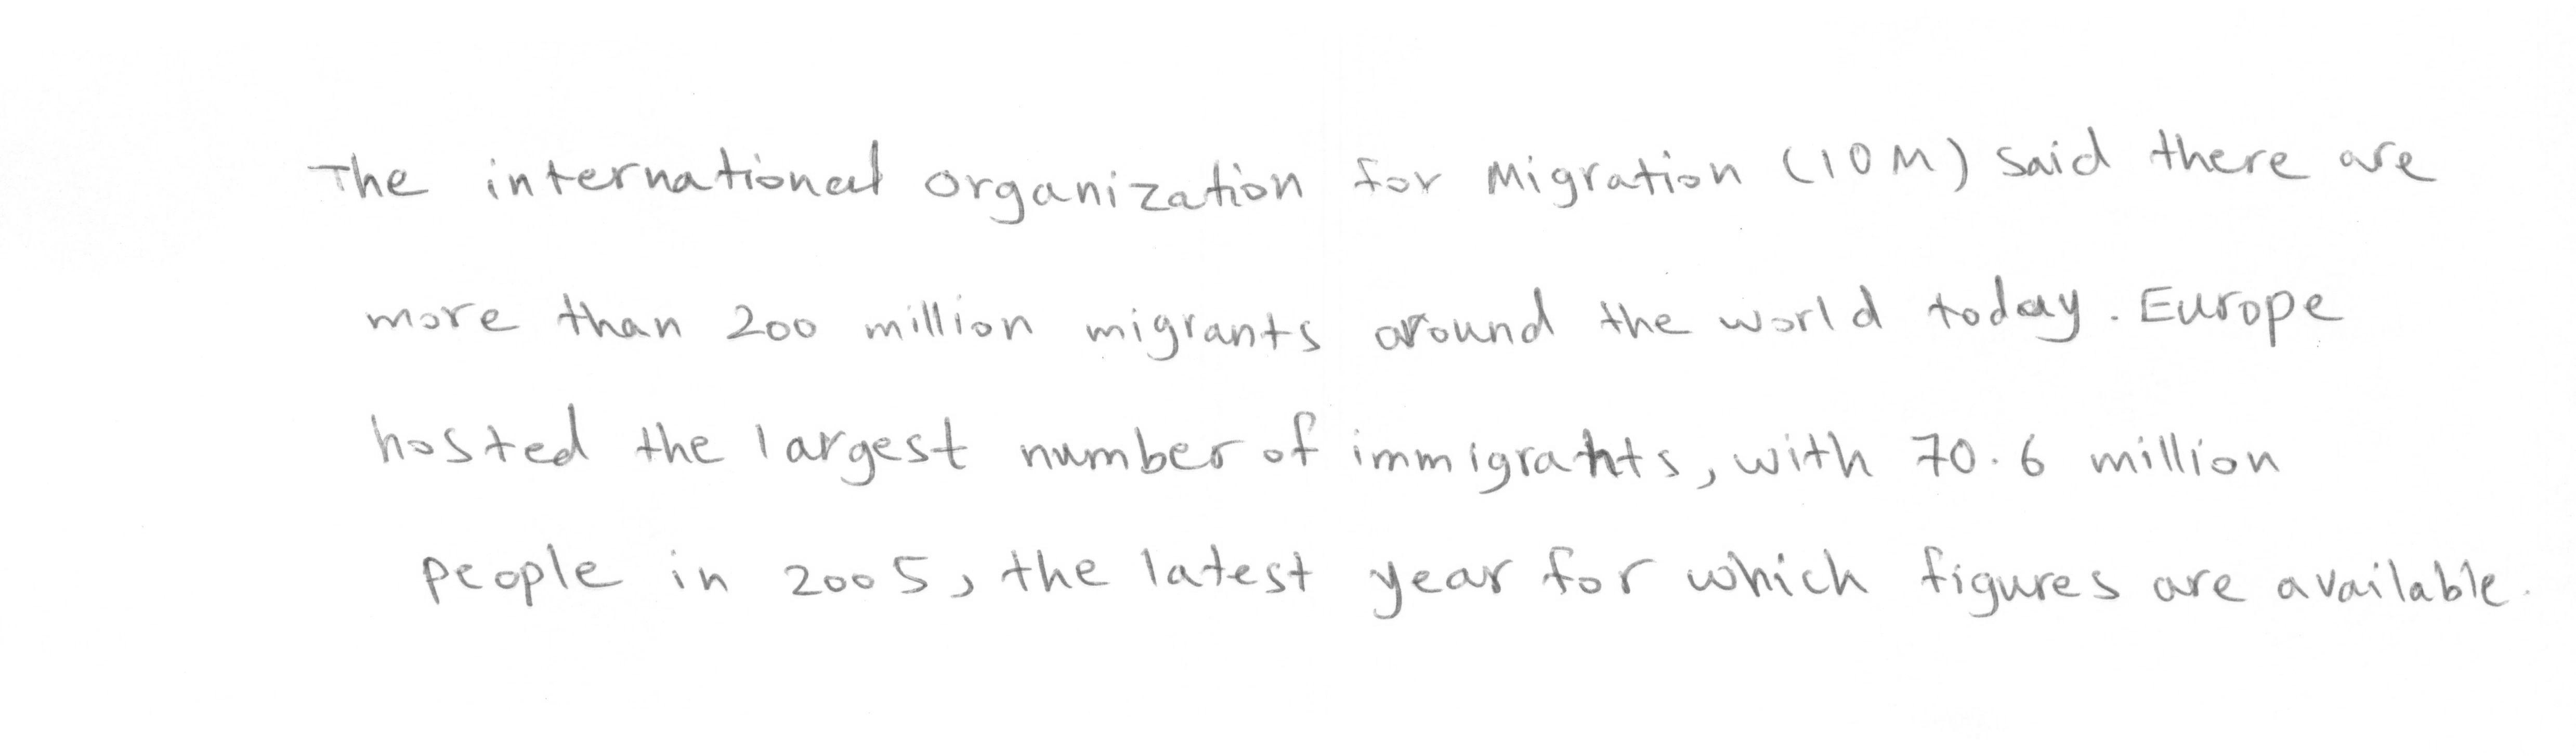 The international organization for Migration (IOM) said there are
more than 200 million migrants around the world today. Europe
hosted the largest number of immigrants, with 70.6 million
people in 2005, the latest year for which figures are available.